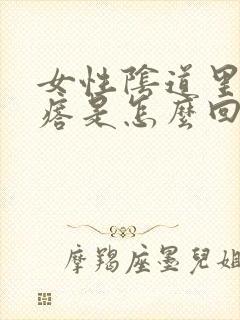 女性陰道里
痞是怎麼回
摩羯座墨兒姐